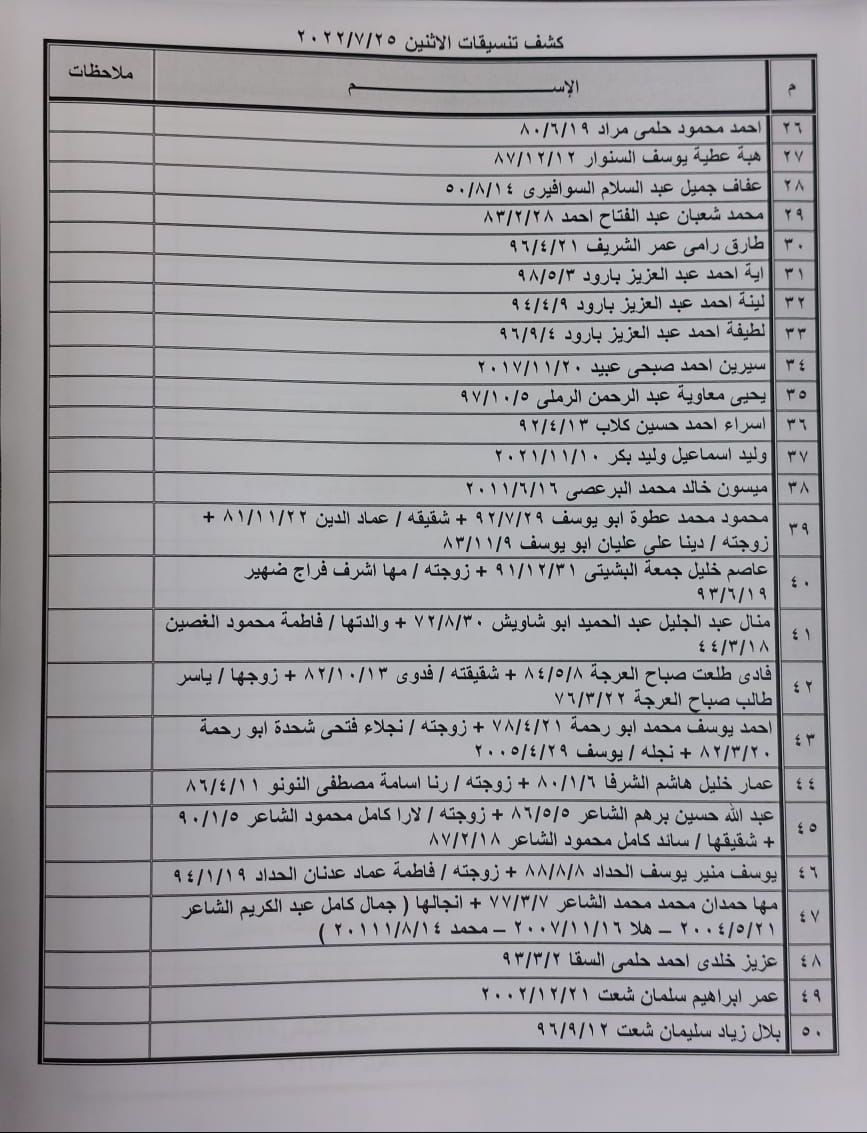 كشف تنسيقات الاثنين ٢٠٢٢/٧/٢٥
م الإســـــــــــــــــم ملاحظات
٢٦ احمد محمود حلمى مراد ٨٠/٦/١٩
٢٧ هبة عطية يوسف السنوار ٨٧/١٢/١٢
٢٨ عفاف جميل عبد السلام السوافيرى ٥٠/٨/١٤
٢٩ محمد شعبان عبد الفتاح احمد ٨٣/٢/٢٨
٣٠ طارق رامى عمر الشريف ٩٦/٤/٢١
٣١ اية احمد عبد العزيز بارود ٩٨/٥/٣
٣٢ لينة احمد عبد العزيز بارود ٩٤/٤/٩
٣٣ لطيفة احمد عبد العزيز بارود ٩٦/٩/٤
٣٤ سيرين احمد صبحى عبيد ٢٠١٧/١١/٢٠
٣٥ يحيى معاوية عبد الرحمن الرملى ٩٧/١٠/٥
٣٦ اسراء احمد حسين كلاب ٩٢/٤/١٣
٣٧ وليد اسماعيل وليد بكر ٢٠٢١/١١/١٠
٣٨ ميسون خالد محمد البرعصى ٢٠١١/٦/١٦
٣٩ محمود محمد عطوة ابو يوسف ٩٢/٧/٢٩ + شقيقه / عماد الدين ٨١/١١/٢٢ +
زوجته / دينا على عليان ابو يوسف ٨٣/١١/٩
٤٠ عاصم خليل جمعة البشيتى ٩١/١٢/٣١ + زوجته / مها اشرف فراج ضهير
٩٣/٦/١٩
٤١ منال عبد الجليل عبد الحميد ابو شاويش ٧٢/٨/٣٠ + والدتها / فاطمة محمود الغصين
٤٤/٣/١٨
٤٢ فادى طلعت صباح العرجة ٨٤/٥/٨ + شقيقته / فدوى ٨٢/١٠/١٣ + زوجها / ياسر
طالب صباح العرجة ٧٦/٣/٢٢
٤٣ احمد يوسف محمد ابو رحمة ٧٨/٤/٢١ + زوجته / نجلاء فتحى شحدة ابو رحمة
٨٢/٣/٢٠ + نجله / يوسف ٢٠٠٥/٤/٢٩
٤٤ عمار خليل هاشم الشرفا ٨٠/١/٦ + زوجته / رنا اسامة مصطفى النونو ٨٦/٤/١١
٤٥ عبد الله حسين برهم الشاعر ٨٦/٥/٥ + زوجته / لارا كامل محمود الشاعر ٩٠/١/٥
+ شقيقها / سائد كامل محمود الشاعر ٨٧/٢/١٨
٤٦ يوسف منير يوسف الحداد ٨٨/٨/٨ + زوجته / فاطمة عماد عدنان الحداد ٩٤/١/١٩
٤٧ مها حمدان محمد محمد الشاعر ٧٧/٣/٧ + انجالها ( جمال كامل عبد الكريم الشاعر
٢٠٠٤/٥/٢١ – هلا ٢٠٠٧/١١/١٦ – محمد ٢٠١١١/٨/١٤ )
٤٨ عزيز خلدى احمد حلمى السقا ٩٣/٣/٢
٤٩ عمر ابراهيم سلمان شعت ٢٠٠٢/١٢/٢١
٥٠ بلال زياد سليمان شعت ٩٦/٩/١٢